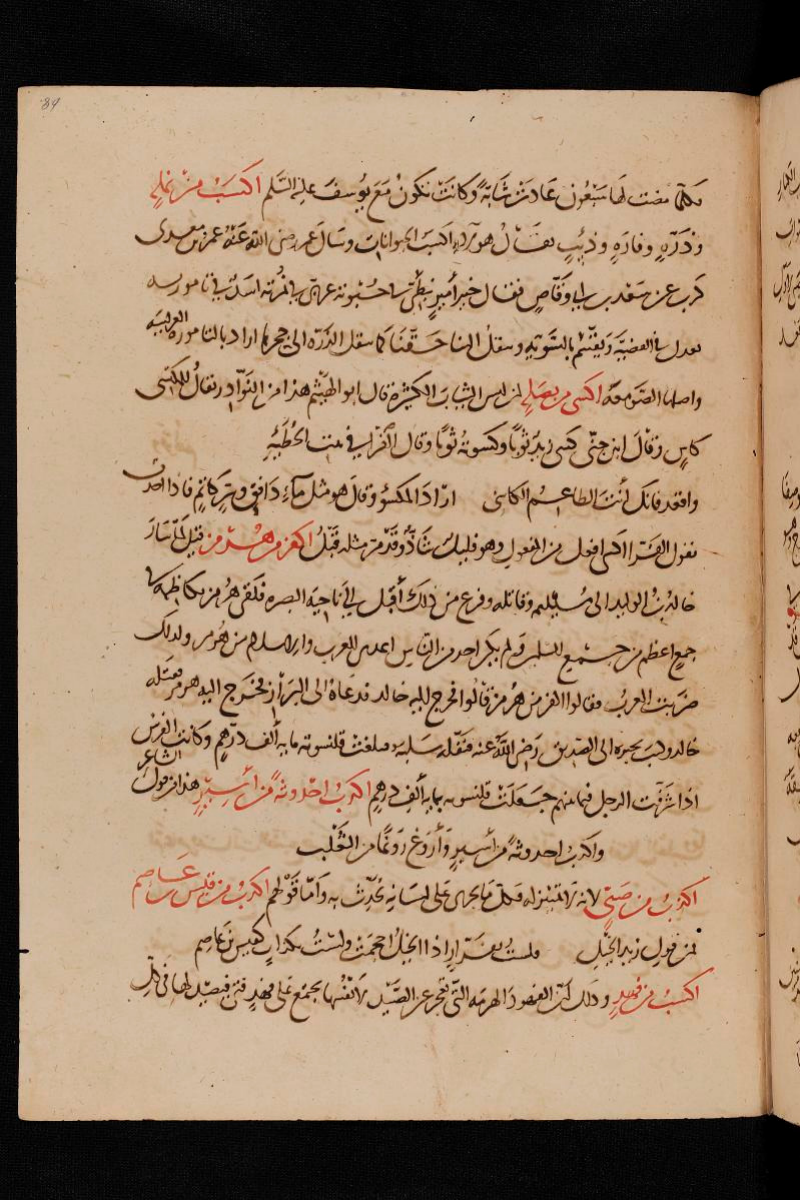 84
فكلما مضت لها سبعون عادت شابة وكانت تكون مع يوسف عليه السلم اكسب من نمل
وذره وفاره وذئب يقال هؤلاء اكسب الحيوانات وسال عمر رضي الله عنه عمرو بن معدى
كرب عن سعد بن ابي وقاص فقال خير أمير نبطى في حبوته عربي في نمرته اسد في تامورته
يعدل في القضية ويقسم بالسوية وينقل الينا حقنا كما تنقل الذرة الى جحرها اراد بالتامورة العريسة
واصلها الصومعة اكسى من بصل لمن لبس الثياب الكثيرة قال ابو الهيثم هذا من النوادر يقال للمكتسي
كاس وقال ابن جني كسى زيد ثوبا وكسوته ثوبا وقال الفرا في بيت الحطيئة
واقعد فانك أنت الطاعم الكاسى اراد المكسو وقال هو مثل ماء دافق وسر كاتم فاذا
يقول الفرا اكسى افعل من المفعول وهو قليل شاذ وقد مر مثله قبل اكفر من هرمز قيل لما سار
خالد بن الوليد الى مسيلمه وقاتله وفرغ من ذلك أقبل إلى ناحية البصره فلقى هرمز بكاظمة في
جمع اعظم من جميع المسلمين ولم يكن احد من الناس اعدى للعرب والاسلام من هرمز ولذلك
ضربت العرب فقالوا اكفر من هرمز قالوا فخرج اليه خالد فدعاه الى البراز فخرج اليه هرمز فقتله
خالد وكتب بخبره الى الصديق رضي الله عنه فنفله سلبه فبلغت قلنسوته مايه ألف درهم وكانت الفرس
اذا شرفت الرجل فيما بينهم جعلت قلنسوته بمايه ألف درهم اكذب احدوثة من أسير هذا من قول الشاعر
واكذب احدوثة من أسير وأروغ روغا من الثعلب
اكذب من صبي لانه لا تمييز له فكل ما يجرى على لسانه تحدث به وأما قولهم اكذب من قيس بن عاصم
لمن قول زيد الخيل فلست بفرار اذا الخيل احجمت ولست بكذاب كقيس بن عاصم
اكسب من فهد وذلك أن الفهود الهرمه التي تعجز عن الصيد لانفسها يجتمع على فهد فتى فيصيد لها في كل